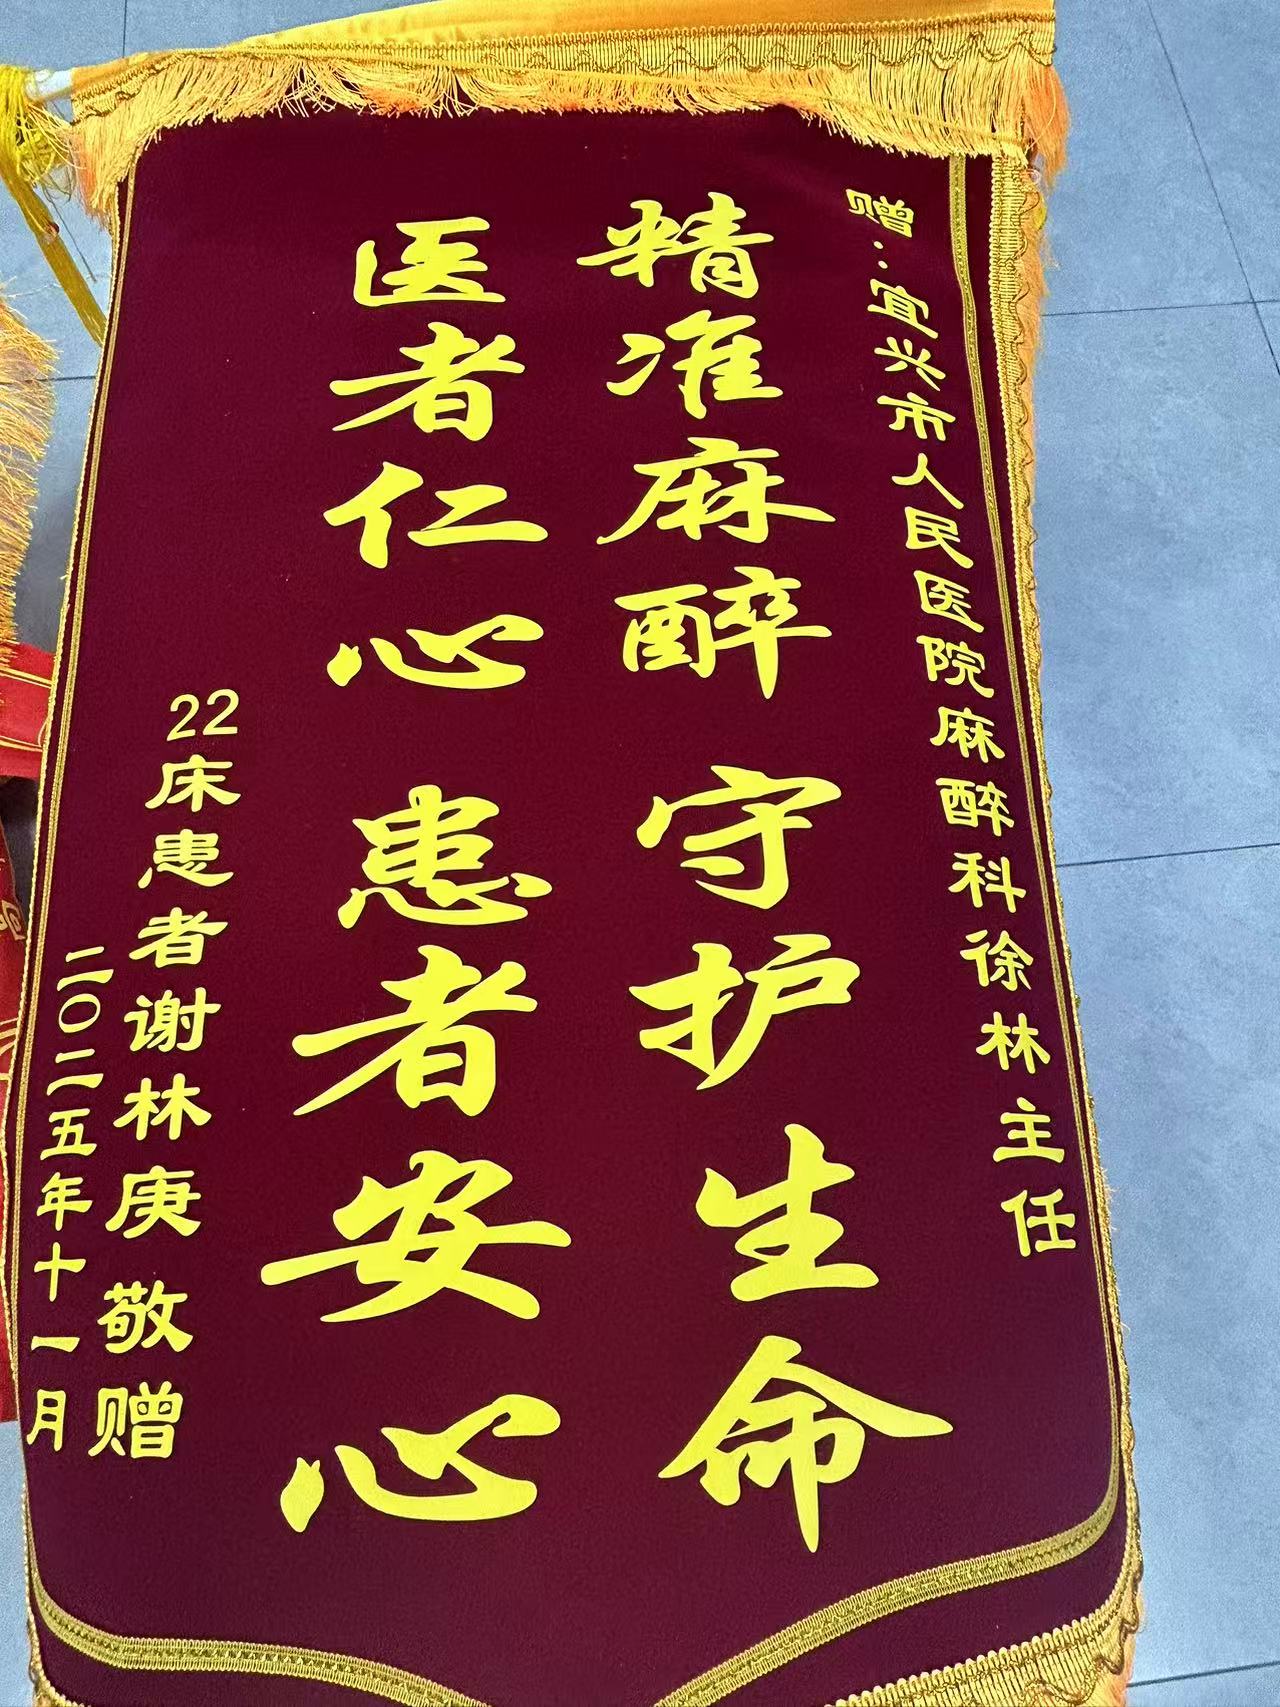 赠:宜兴市人民医院麻醉科徐林主任
精准麻醉 守护生命
医者仁心 患者安心
22床患者谢林庚 敬赠
二〇二五年十一月